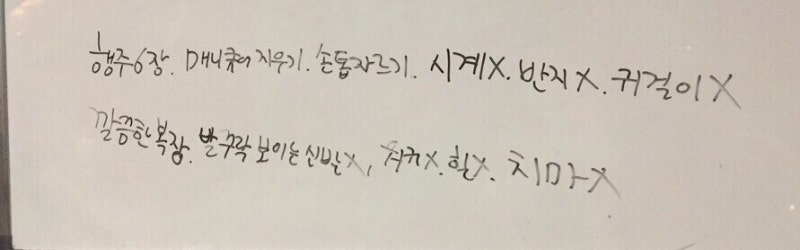 행주6장. 매니큐어 지우기. 손톱자르기. 시계X. 반지X. 귀걸이X
깔끔한 복장. 발가락 보이는 신발X, 저지X. 힐X. 치마X